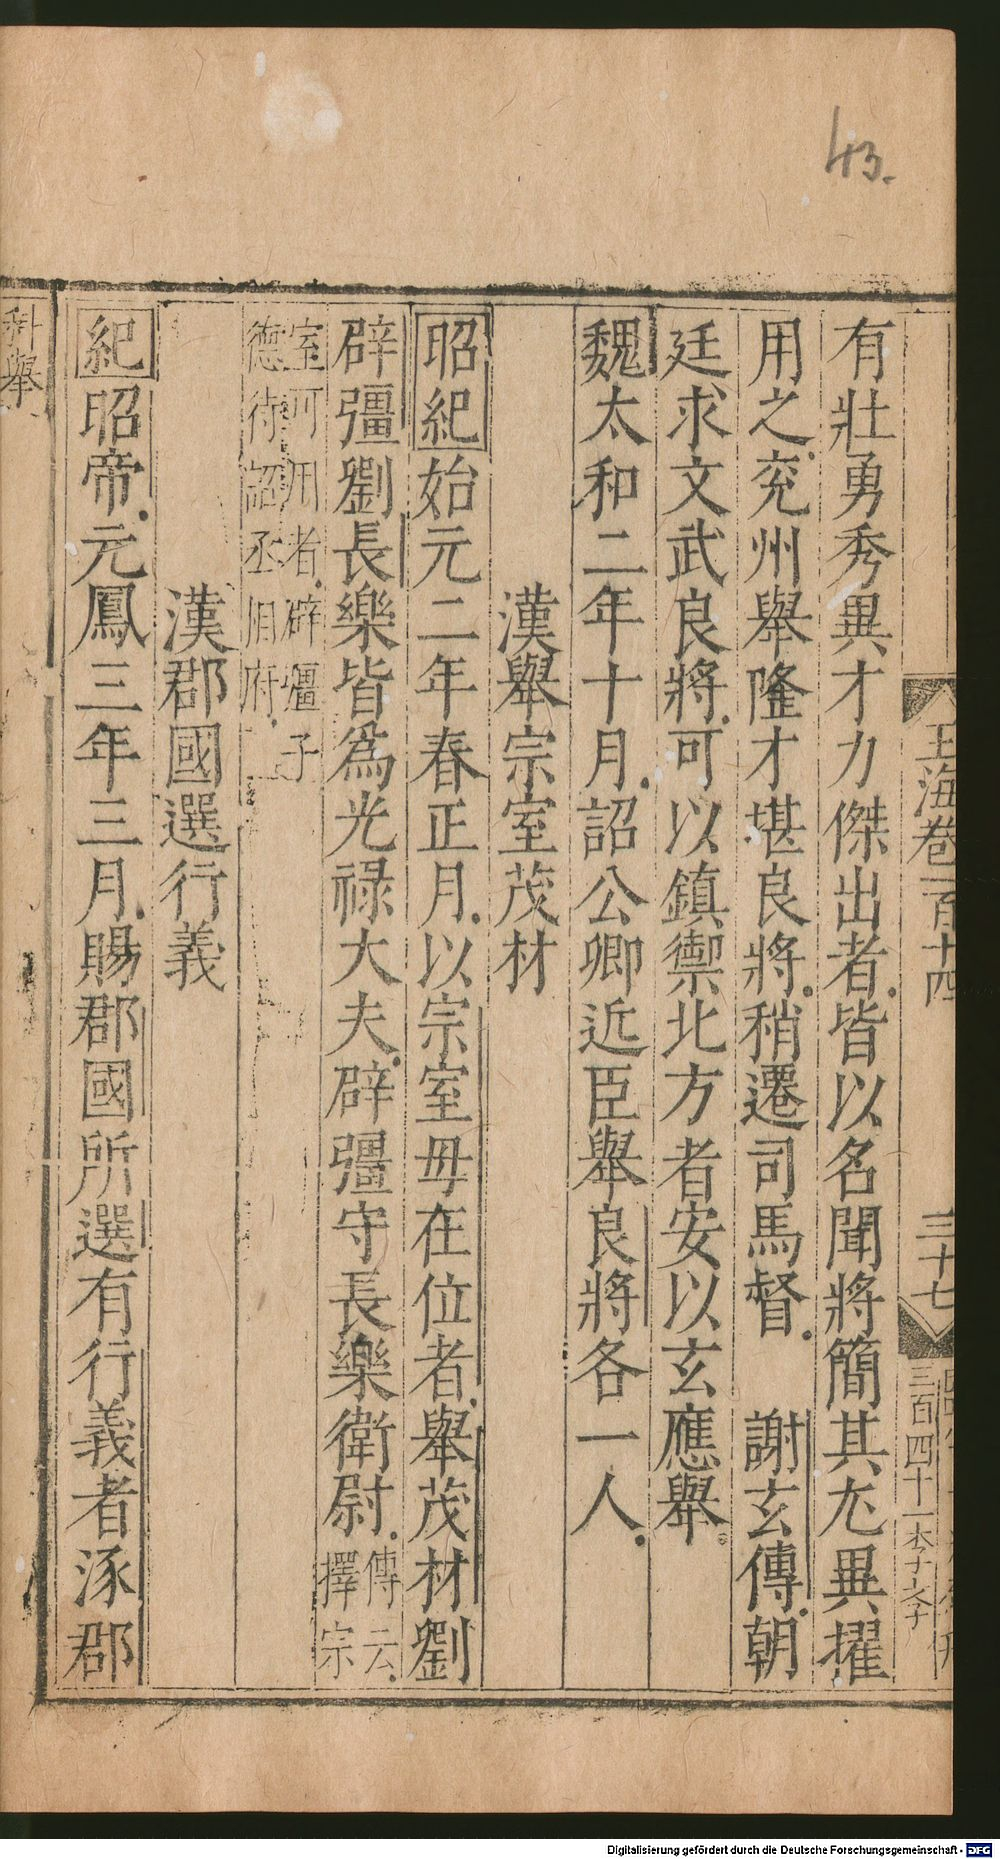 43.
玉海卷一百十四
三十七
三百四十一 李文子
有壯勇秀異才力傑出者皆以名聞將簡其尤異擢
用之兖州舉隆才堪良將稍遷司馬督 謝玄傳朝
廷求文武良將可以鎮禦北方者安以玄應舉
魏太和二年十月詔公卿近臣舉良將各一人
漢舉宗室茂材
昭紀始元二年春正月以宗室毋在位者舉茂材劉
辟彊劉長樂皆為光祿大夫辟彊守長樂衛尉傳云擇宗
室可用者辟彊子
德待詔丞相府
漢郡國選行義
紀昭帝元鳳三年三月賜郡國所選有行義者涿郡
科舉
Digitalisierung gefördert durch die Deutsche Forschungsgemeinschaft - DFG